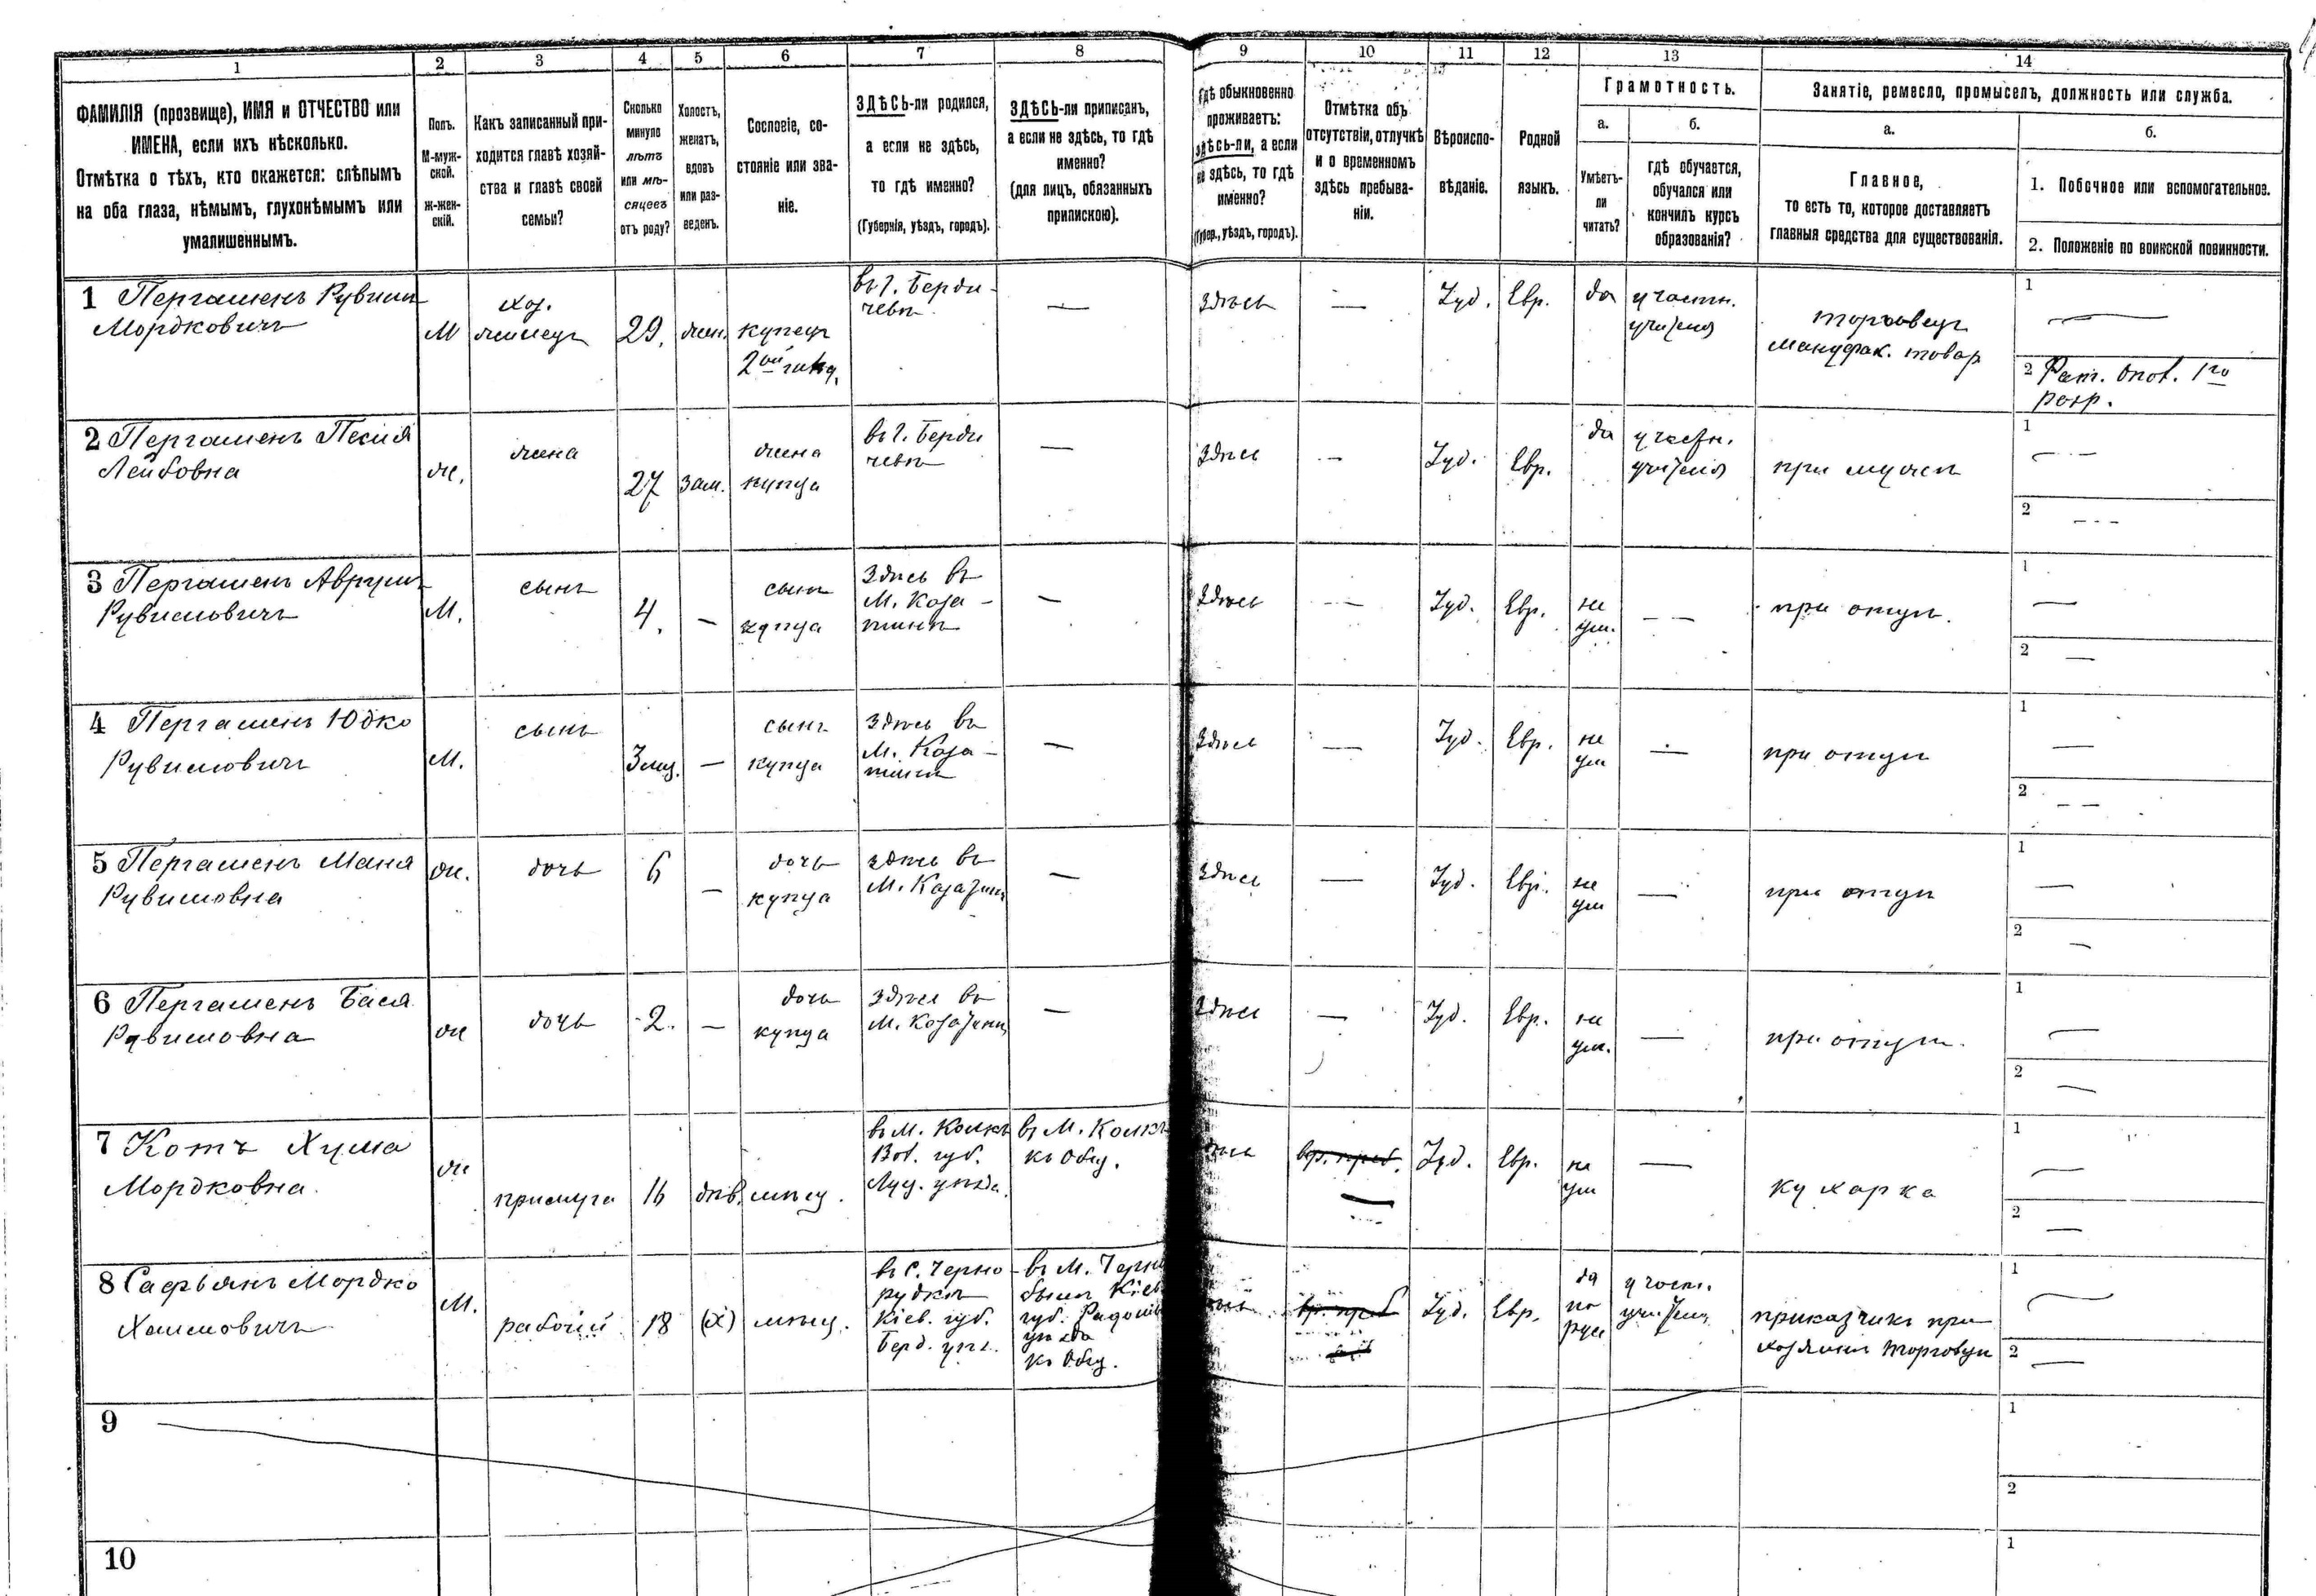 1 2 3 4 5 6 7 8 9 10 11 12 13 14
ФАМИЛІЯ (прозвище), ИМЯ и ОТЧЕСТВО или
ИМЕНА, если ихъ нѣсколько.
Отмѣтка о тѣхъ, кто окажется: слѣпымъ
на оба глаза, нѣмымъ, глухонѣмымъ или
умалишеннымъ.
Полъ.
М-муж-
ской.
Ж-жен-
скій.
Какъ записанный при-
ходится главѣ хозяй-
ства и главѣ своей
семьи?
Сколько
минуло
лѣтъ
или мѣ-
сяцевъ
отъ роду?
Холостъ,
женатъ,
вдовъ
или раз-
веденъ.
Сословіе, со-
стояніе или зва-
ніе.
ЗДѢСЬ-ли родился,
а если не здѣсь,
то гдѣ именно?
(Губернія, уѣздъ, городъ).
ЗДѢСЬ-ли приписанъ,
а если не здѣсь, то гдѣ
именно?
(для лицъ, обязанныхъ
припискою).
Гдѣ обыкновенно
проживаетъ:
здѣсь-ли, а если
не здѣсь, то гдѣ
именно?
(Губер., уѣздъ, городъ).
Отмѣтка объ
отсутствіи, отлучкѣ
и о временномъ
здѣсь пребыва-
ніи.
Вѣроиспо-
вѣданіе.
Родной
языкъ.
Грамотность.
а.
Умѣетъ-
ли
читать?
б.
гдѣ обучается,
обучался или
кончилъ курсъ
образованія?
Занятіе, ремесло, промыселъ, должность или служба.
а.
Главное,
то есть то, которое доставляетъ
главныя средства для существованія.
б.
1. Побочное или вспомогательное.
2. Положеніе по воинской повинности.
1 Пергаменъ Рувинъ
Мордковичъ
М
хоз.
29.
жен.
купецъ
2ой гильд.
въ г. Берди-
чевѣ
—
здѣсь
—
Іуд.
Евр.
да
у частн.
учителя
торговецъ
мануфак. товар
1 —
2 Рат. Опол. 1го
разр.
2 Пергаменъ Песия
Лейбовна
ж.
жена
27
зам.
жена
купца
въ г. Берди
чевѣ
—
здѣсь
—
Іуд.
Евр.
да
у частн.
учителя
при мужѣ
1 —
2 —
3 Пергаменъ Аврумъ
Рувимовичъ
М.
сынъ
4.
—
сынъ
купца
Здѣсь въ
М. Коза-
тинѣ
—
здѣсь
—
Іуд.
Евр.
не
ум.
—
при отцѣ.
1 —
2 —
4 Пергаменъ Юдко
Рувимовичъ
М.
сынъ
3 мѣс.
—
сынъ
купца
здѣсь въ
М. Коза-
тинѣ
—
здѣсь
—
Іуд.
Евр.
не
ум
—
при отцѣ
1 —
2 —
5 Пергаменъ Маня
Рувимовна
ж.
дочь
6
—
дочь
купца
здѣсь въ
М. Козатинѣ
—
здѣсь
—
Іуд.
Евр.
не
ум
—
при отцѣ
1 —
2 —
6 Пергаменъ Бася
Рувимовна
ж
дочь
2.
—
дочь
купца
здѣсь въ
М. Козатинѣ
—
здѣсь
—
Іуд.
Евр.
не
ум.
—
при отцѣ.
1 —
2 —
7 Котъ Хума
Мордковна.
ж
прислуга
16
дѣв.
мѣщ.
въ М. Колкѣ
Вол. губ.
Луц. уѣзда.
въ М. Колкѣ
къ Общ.
здѣсь
вр. преб.
—
Іуд.
Евр.
не
ум
—
кухарка
1 —
2 —
8 Сафьянъ Мордко
Хаимовичъ
М.
рабочій
18
(х)
мѣщ.
въ С. Черно-
рудкѣ
Кіев. губ.
Берд. уѣз.
въ М. Черно
былѣ Кіев
губ. Радомы
уѣзда
къ Общ.
вр. преб
Іуд.
Евр.
да
по
рус
у частн.
учителя
приказчикъ при
хозяинѣ торговцѣ
1 —
2 —
9
1
2
10
1